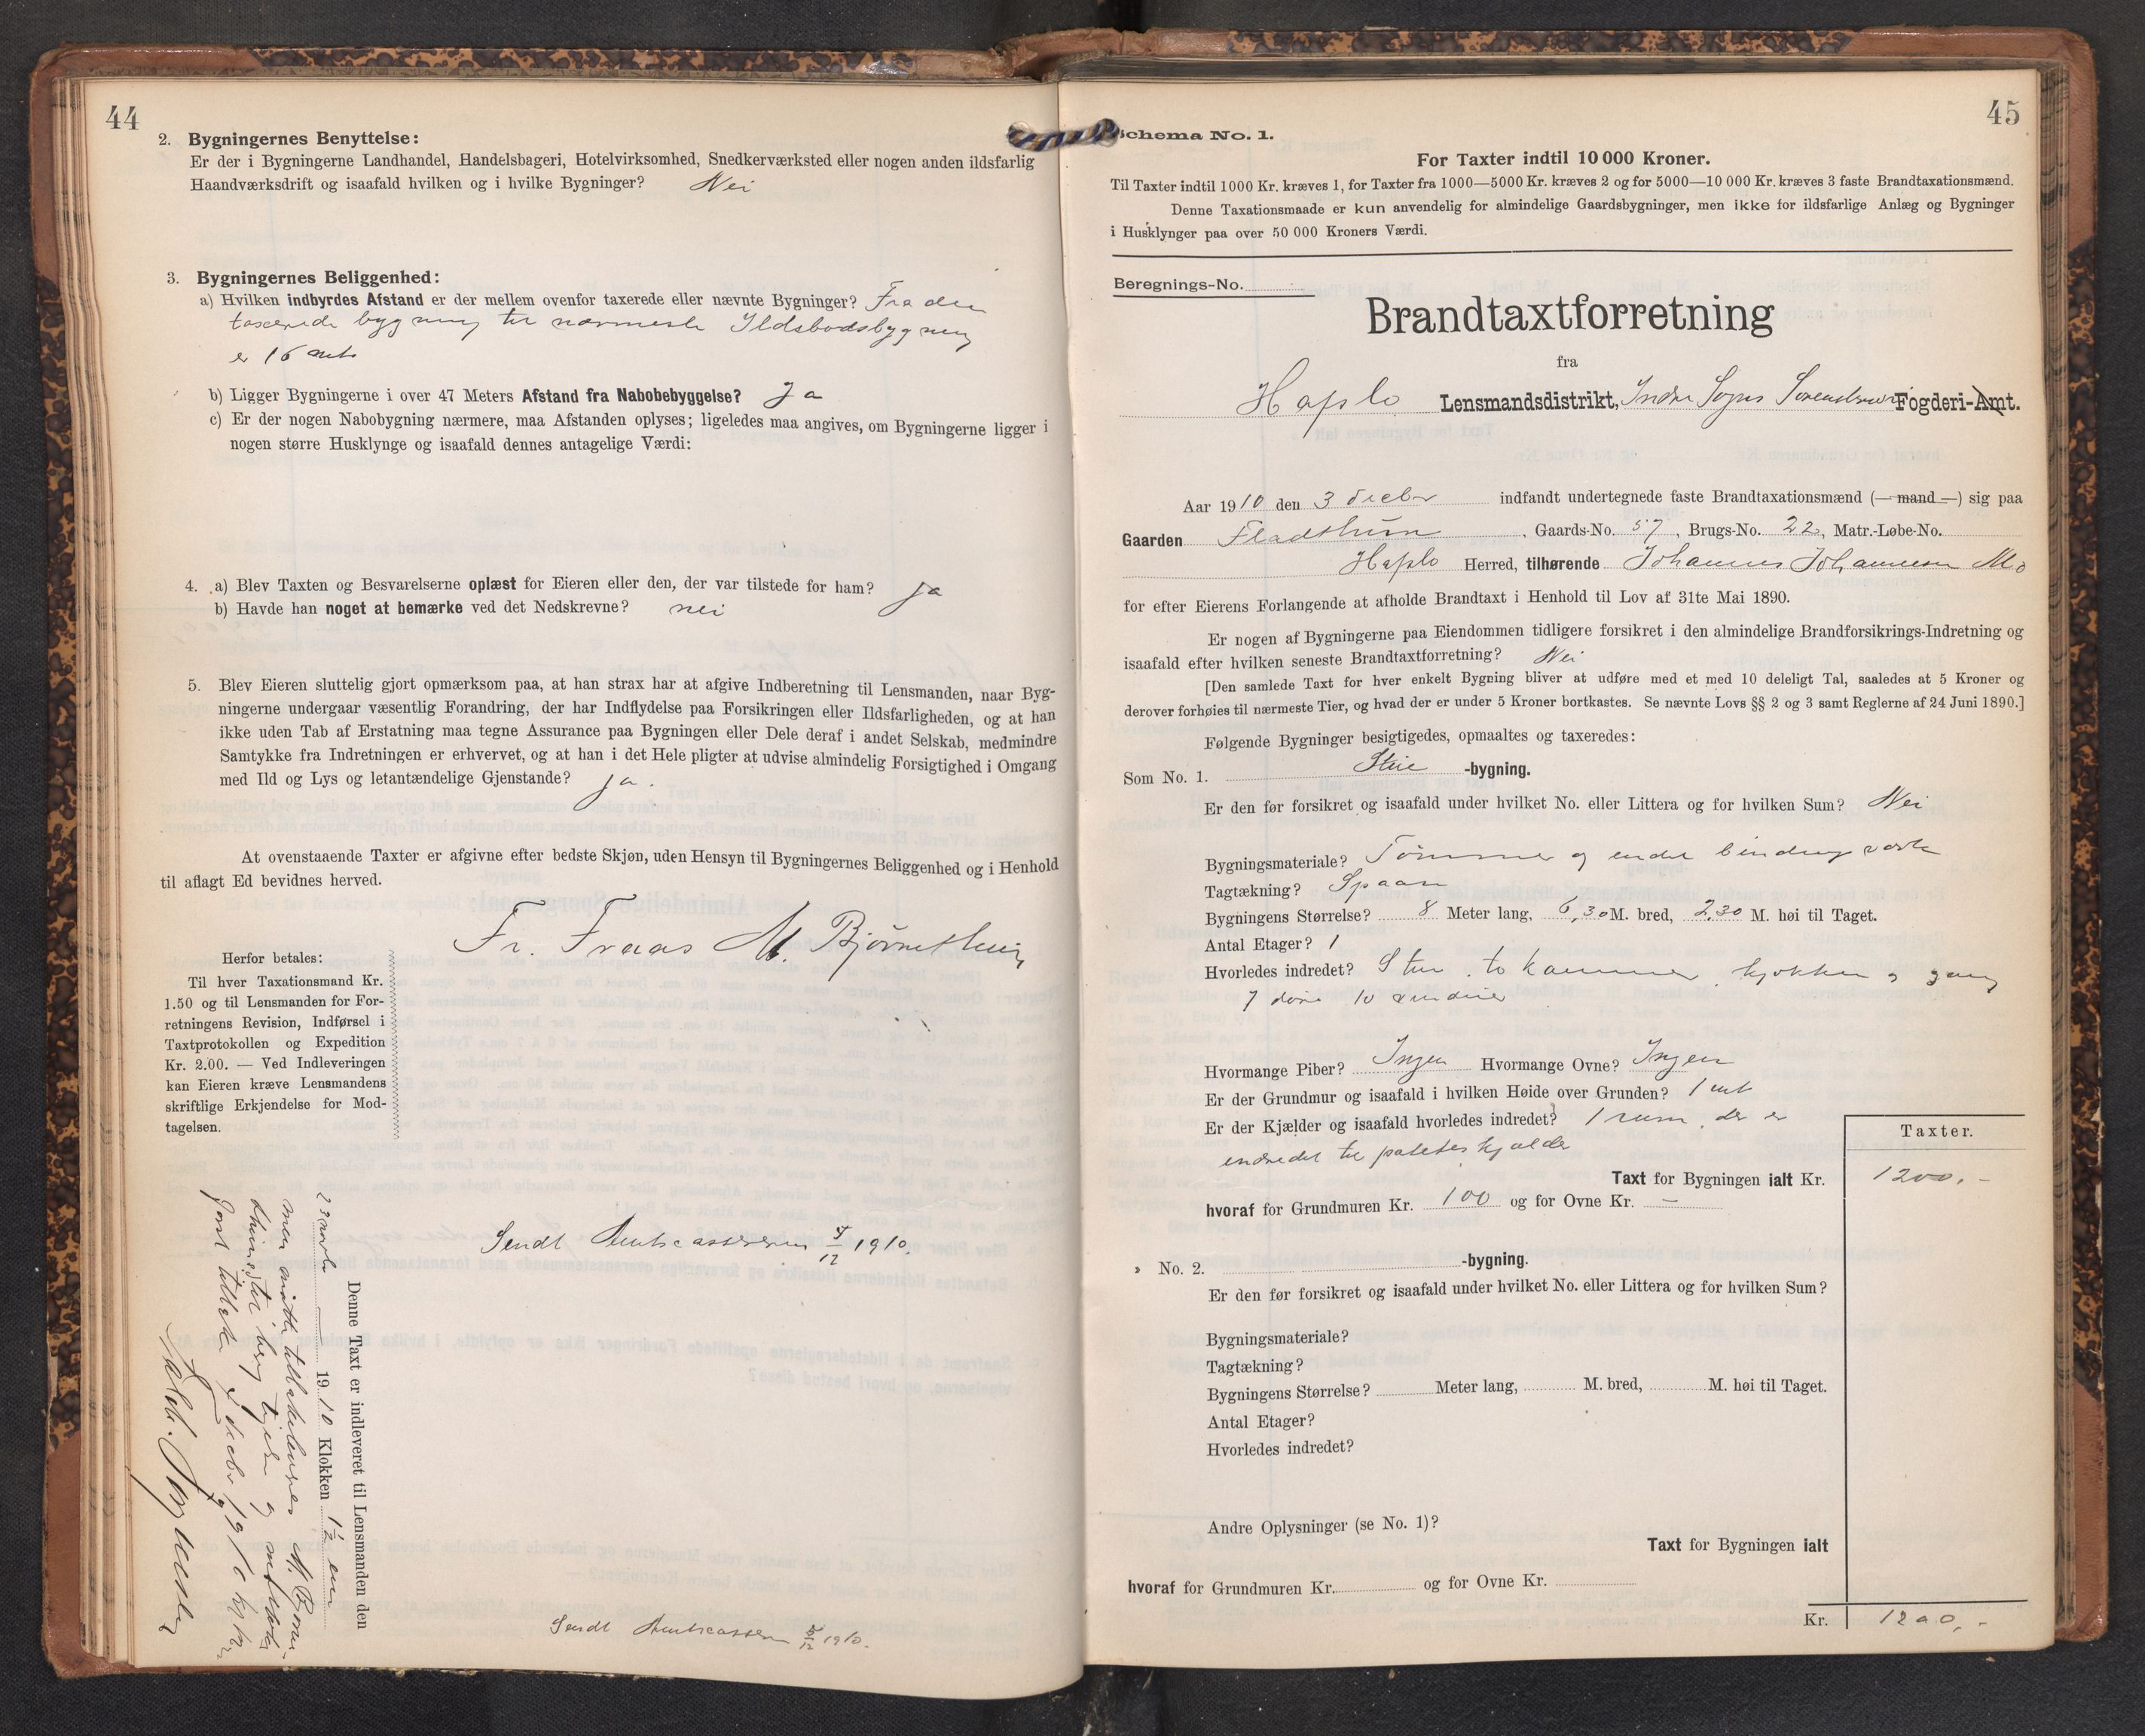 44
2. Bygningernes Benyttelse:
Er der i Bygningerne Landhandel, Handelsbageri, Hotelvirksomhed, Snedkerværksted eller nogen anden ildsfarlig
Haandværksdrift og isaafald hvilken og i hvilke Bygninger? Nei
3. Bygningernes Beliggenhed:
a) Hvilken indbyrdes Afstand er der mellem ovenfor taxerede eller nævnte Bygninger? Fra den
taxerede bygning til nærmeste Ildsbodsbygning
er 16 mt
b) Ligger Bygningerne i over 47 Meters Afstand fra Nabobebyggelse? Ja
c) Er der nogen Nabobygning nærmere, maa Afstanden oplyses; ligeledes maa angives, om Bygningerne ligger i
nogen større Husklynge og isaafald dennes antagelige Værdi:
4. a) Blev Taxten og Besvarelserne oplæst for Eieren eller den, der var tilstede for ham? Ja
b) Havde han noget at bemærke ved det Nedskrevne? nei
5. Blev Eieren sluttelig gjort opmærksom paa, at han strax har at afgive Indberetning til Lensmanden, naar Byg-
ningerne undergaar væsentlig Forandring, der har Indflydelse paa Forsikringen eller Ildsfarligheden, og at han
ikke uden Tab af Erstatning maa tegne Assurance paa Bygningen eller Dele deraf i andet Selskab, medmindre
Samtykke fra Indretningen er erhvervet, og at han i det Hele pligter at udvise almindelig Forsigtighed i Omgang
med Ild og Lys og letantændelige Gjenstande? ja.
At ovenstaaende Taxter er afgivne efter bedste Skjøn, uden Hensyn til Bygningernes Beliggenhed og i Henhold
til aflagt Ed bevidnes herved.
Fr. Fraas M. Bjørnethun
Herfor betales:
Til hver Taxationsmand Kr.
1.50 og til Lensmanden for For-
retningens Revision, Indførsel i
Taxtprotokollen og Expedition
Kr. 2.00. — Ved Indleveringen
kan Eieren kræve Lensmandens
skriftlige Erkjendelse for Mod-
tagelsen.
Sendt Amtscassereren 5/12 1910.
Denne Taxt er indleveret til Lensmanden den
23 novbr 1910 Klokken 1½ em
men måtte tilbakeleveres M. Bjørne-
thun og
4 decbr 1910
Sendt Amtscasseren 5/12 1910.
45
Schema No. 1.
For Taxter indtil 10 000 Kroner.
Til Taxter indtil 1000 Kr. kræves 1, for Taxter fra 1000—5000 Kr. kræves 2 og for 5000—10 000 Kr. kræves 3 faste Brandtaxationsmænd.
Denne Taxationsmaade er kun anvendelig for almindelige Gaardsbygninger, men ikke for ildsfarlige Anlæg og Bygninger
i Husklynger paa over 50 000 Kroners Værdi.
Beregnings-No.
Brandtaxtforretning
fra
Hafslo Lensmandsdistrikt, Indre Sogns Sorenskriveri Fogderi-Amt.
Aar 1910 den 3 decbr indfandt undertegnede faste Brandtaxationsmænd (— mand —) sig paa
Gaarden Fladthun, Gaards-No. 57, Brugs-No. 22, Matr.-Løbe-No.
Hafslo Herred, tilhørende Johannes Johannesen Mo
for efter Eierens Forlangende at afholde Brandtaxt i Henhold til Lov af 31te Mai 1890.
Er nogen af Bygningerne paa Eiendommen tidligere forsikret i den almindelige Brandforsikrings-Indretning og
isaafald efter hvilken seneste Brandtaxtforretning? Nei
[Den samlede Taxt for hver enkelt Bygning bliver at udføre med et med 10 deleligt Tal, saaledes at 5 Kroner og
derover forhøies til nærmeste Tier, og hvad der er under 5 Kroner bortkastes. Se nævnte Lovs §§ 2 og 3 samt Reglerne af 24 Juni 1890.]
Følgende Bygninger besigtigedes, opmaaltes og taxeredes:
Som No. 1. Stue -bygning.
Er den før forsikret og isaafald under hvilket No. eller Littera og for hvilken Sum? Nei
Bygningsmateriale? Tømmer og endel bindingsverk
Tagtækning? Spaan
Bygningens Størrelse? 8 Meter lang, 6,30 M. bred, 2,30 M. høi til Taget.
Antal Etager? 1
Hvorledes indredet? Stue, to kammer, kjøkken og gang
7 døre 10 vinduer
Hvormange Piber? Ingen Hvormange Ovne? Ingen
Er der Grundmur og isaafald i hvilken Høide over Grunden? 1 mt
Er der Kjælder og isaafald hvorledes indredet? 1 rum, der er
indredet til potetes kjælder
Taxter.
Taxt for Bygningen ialt Kr. 1200,-
hvoraf for Grundmuren Kr. 100 og for Ovne Kr. —
» No. 2. -bygning.
Er den før forsikret og isaafald under hvilket No. eller Littera og for hvilken Sum?
Bygningsmateriale?
Tagtækning?
Bygningens Størrelse? Meter lang, M. bred, M. høi til Taget.
Antal Etager?
Hvorledes indredet?
Andre Oplysninger (se No. 1)?
Taxt for Bygningen ialt
hvoraf for Grundmuren Kr. og for Ovne Kr.
Kr. 1200,-